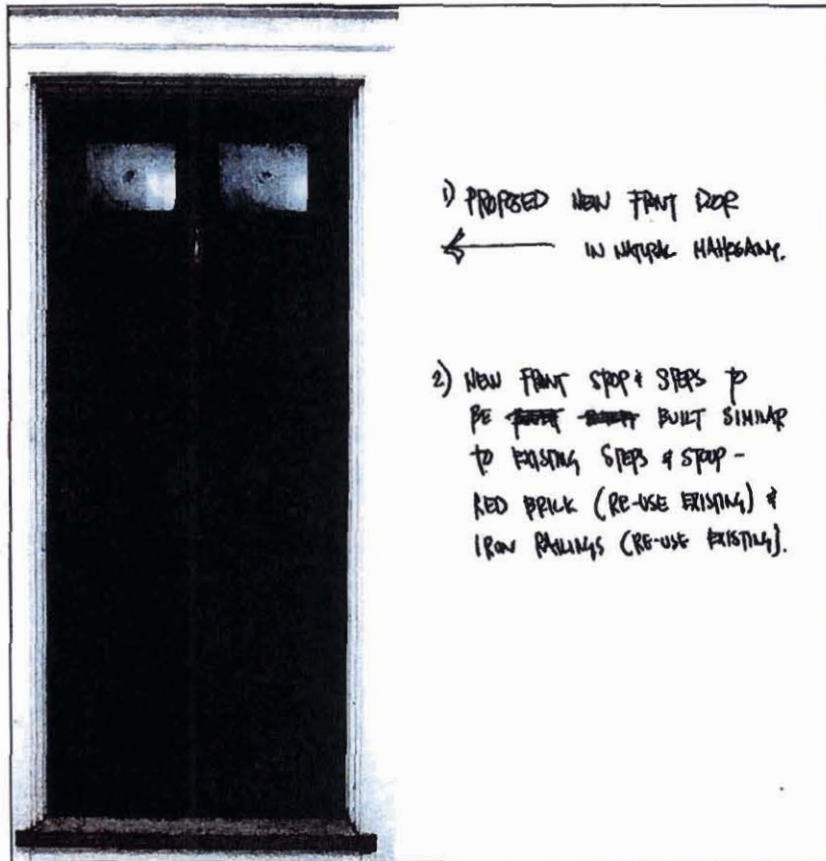 1) PROPOSED NEW FRONT DOOR
IN NATURAL MAHOGANY.
2) NEW FRONT STOOP & STEPS TO
BE BUILT SIMILAR
TO EXISTING STEPS & STOOP -
RED BRICK (RE-USE EXISTING) &
IRON RAILINGS (RE-USE EXISTING).